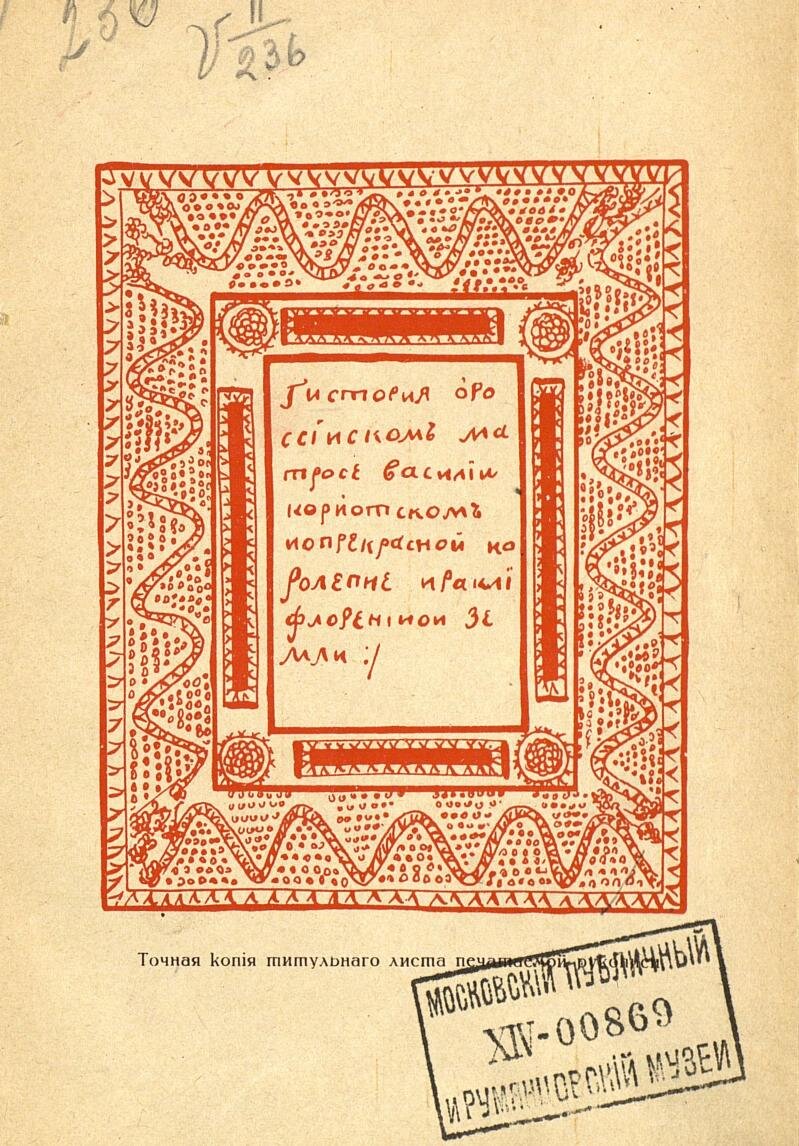 230
V II/236
Гистория ѡро
ссїискомъ ма
тросе василiи
кориотскомъ
ипопрекрасной ко
ролевне иракли
флоренскои зе
мли :/
Точная копія титульнаго листа печатаемой рукописи
МОСКОВСКІЙ ПУБЛИЧНЫЙ
XIV-00869
и РУМЯНЦОВСКІЙ МУЗЕИ